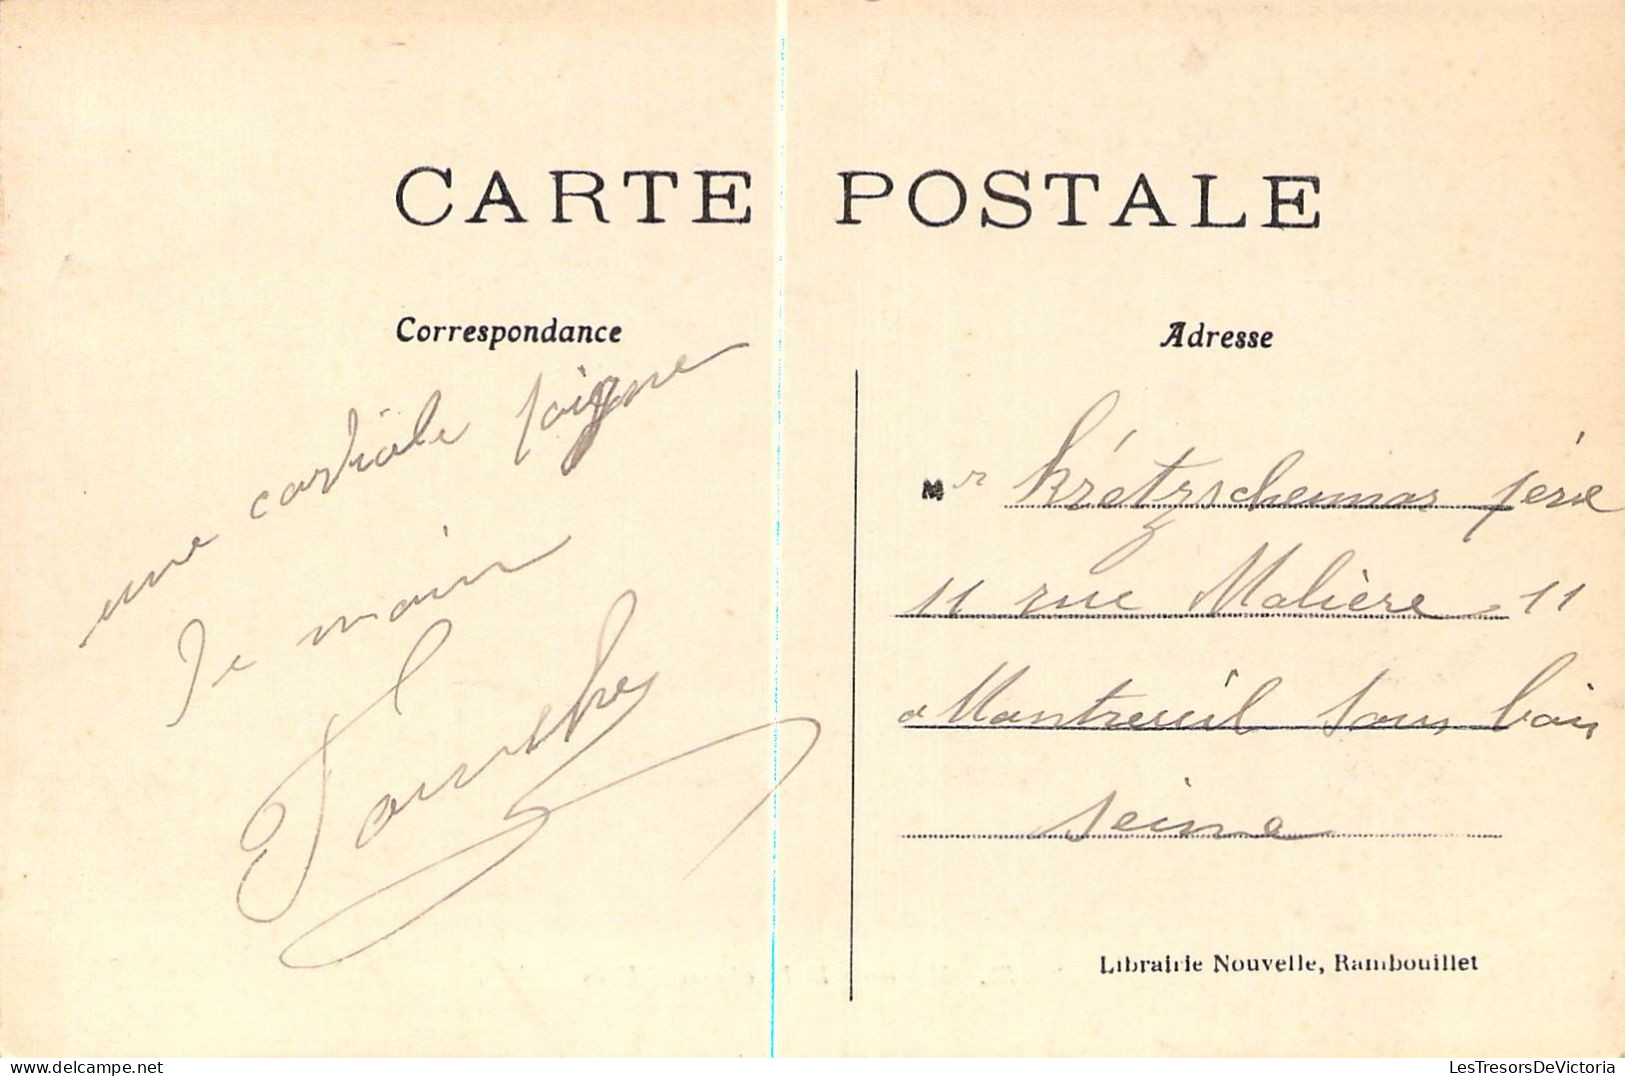 CARTE POSTALE
Correspondance
une cordiale poigne
de main
Adresse
Mr Krétzschemmar père
11 rue Molière 11
a Montreuil sous bois
Seine
Librairie Nouvelle, Rambouillet
LesTresorsDeVictoria